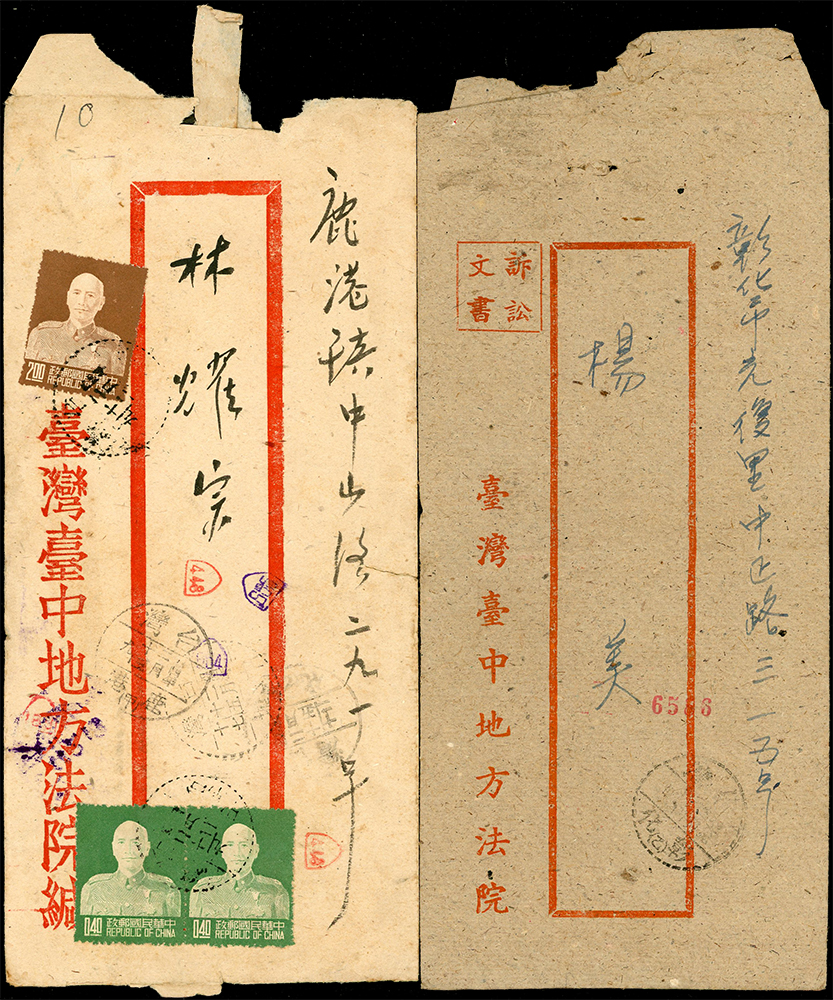 10
鹿港鎮中山路二九一号
林耀宗
臺灣臺中地方法院緘
2.00
政郵國民華中
REPUBLIC OF CHINA
448
政郵國民華中
REPUBLIC OF CHINA
0.40
政郵國民華中
REPUBLIC OF CHINA
0.40
彰化市光復里中正路三一五号
訴訟
文書
楊 美
臺灣臺中地方法院